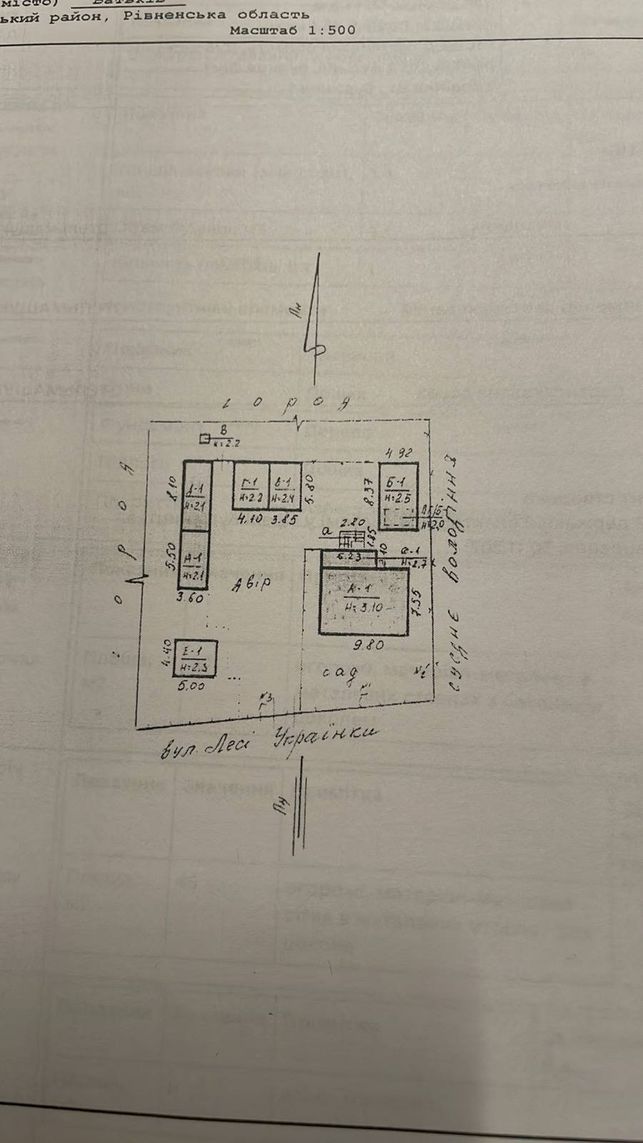 місто) Батьків
ький район, Рівненська область
Масштаб 1:500
Пн
г о р о д
В
н=2.2
4.92
г о р о д
8.10
Д-1
н=2.1
Г-1
н=2.2
В-1
н=2.4
5.80
8.37
Б-1
н=2.5
4.10
3.85
н=2.0
2.80
а
1.85
5.50
н=2.1
6.23
а-1
н=2.7
3.60
Двір
А-1
н=3.10
7.55
9.80
сусіднє володіння
4.40
Е-1
н=2.3
5.00
сад
№2
№3
№1
вул. Лесі Українки
Пд